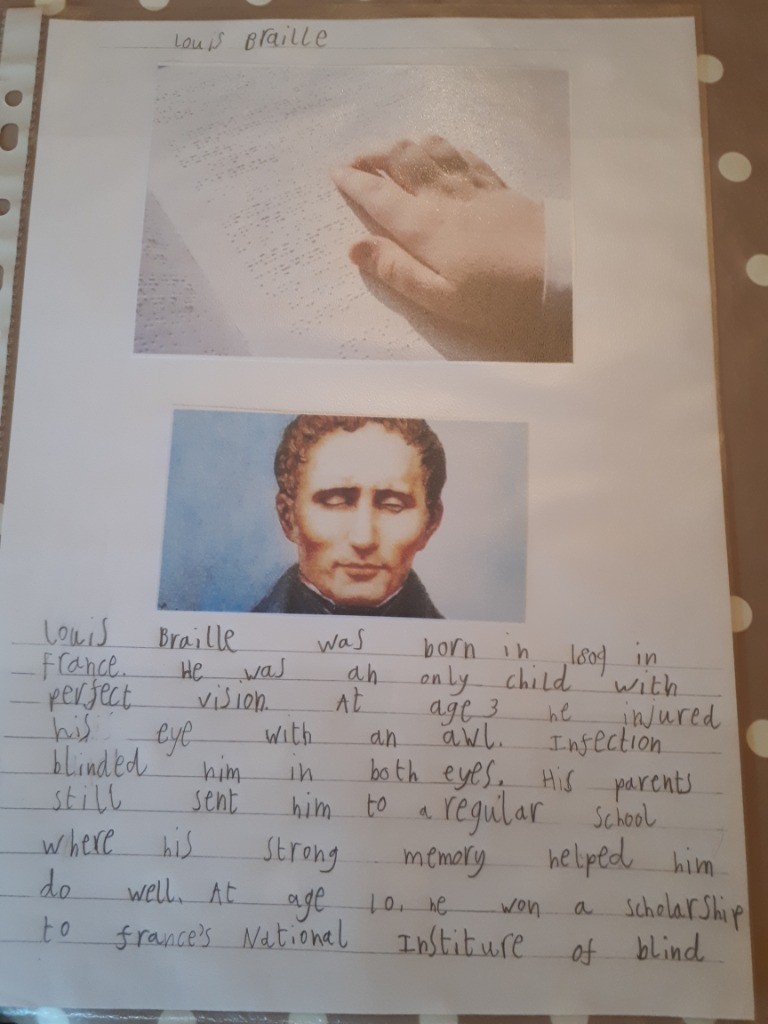 Louis Braille
Louis Braille was born in 1809 in
France. He was an only child with
perfect vision. At age 3 he injured
his eye with an awl. Infection
blinded him in both eyes. His parents
still sent him to a regular school
where his strong memory helped him
do well. At age 10, he won a scholarship
to france's National Institure of blind